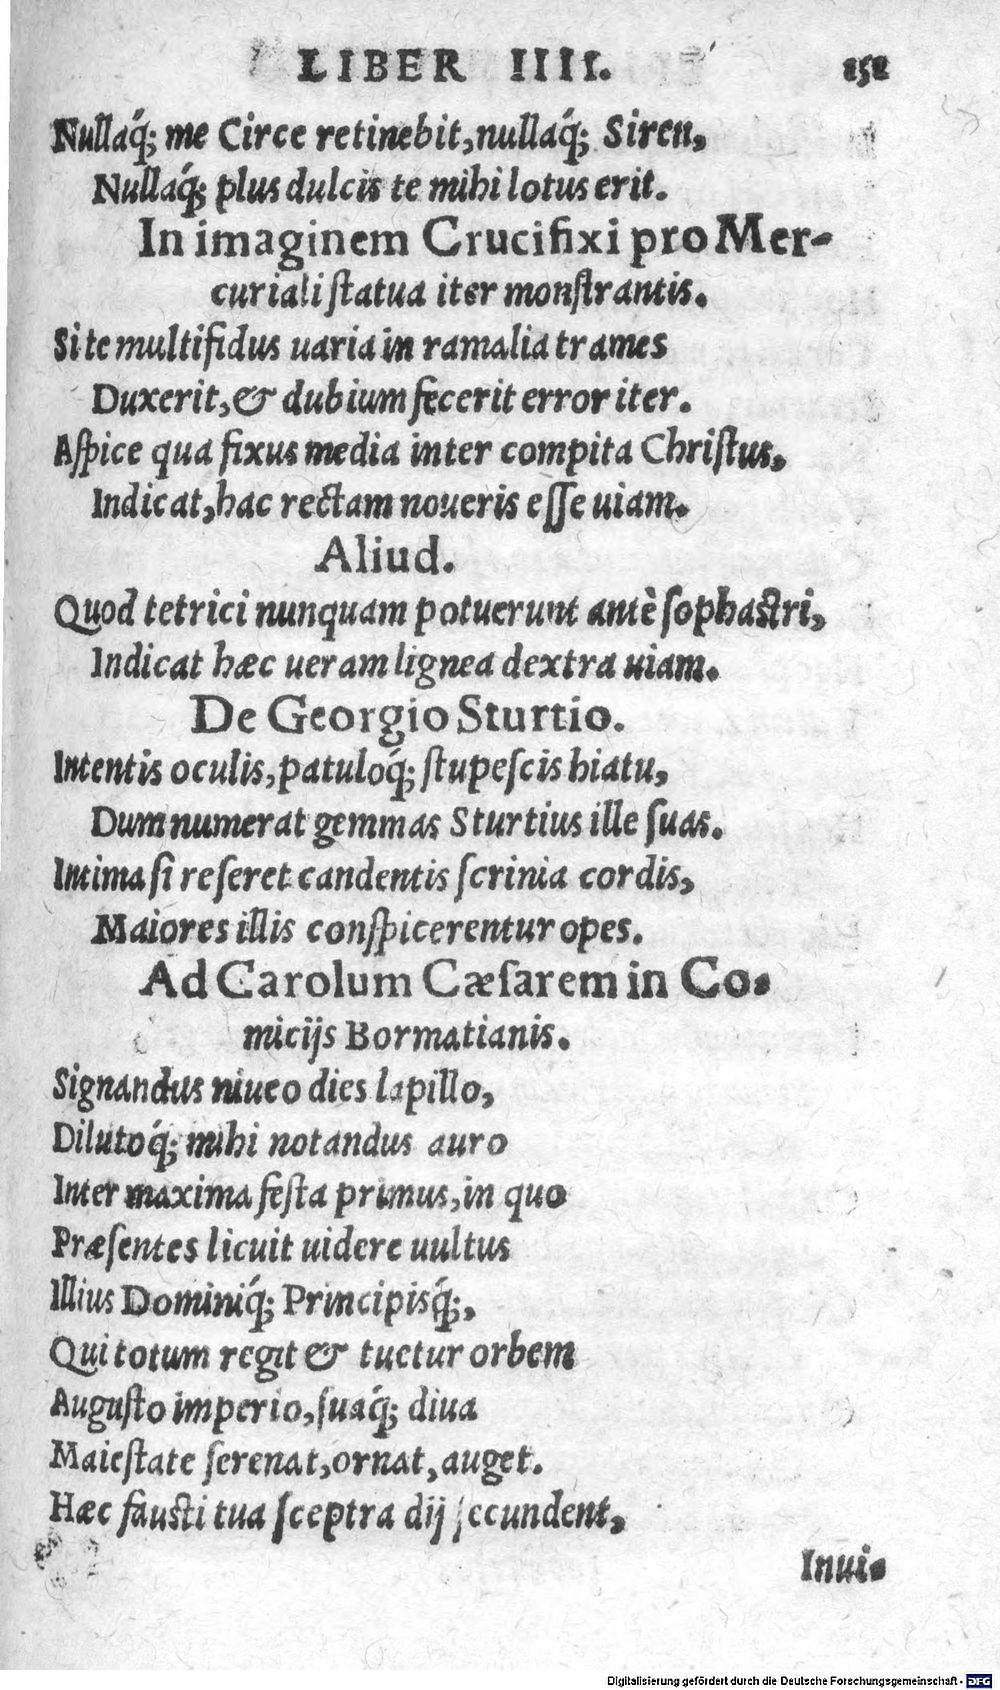 LIBER IIII. 151
Nullaq́; me Circe retinebit, nullaq́; Siren,
Nullaq́; plus dulcis te mihi lotus erit.
In imaginem Crucifixi pro Mer-
curiali ſtatua iter monſtrantis.
Si te multifidus uaria in ramalia trames
Duxerit, & dubium fecerit error iter.
Aſpice qua fixus media inter compita Chriſtus,
Indicat, hac rectam noueris eſſe uiam.
Aliud.
Quod tetrici nunquam potuerunt antè ſophaſtri,
Indicat hæc ueram lignea dextra uiam.
De Georgio Sturtio.
Intentis oculis, patuloq́; ſtupeſcis hiatu,
Dum numerat gemmas Sturtius ille ſuas.
Intima ſi reſeret candentis ſcrinia cordis,
Maiores illis conſpicerentur opes.
Ad Carolum Cæſarem in Co-
micijs Bormatianis.
Signandus niueo dies lapillo,
Dilutoq́; mihi notandus auro
Inter maxima feſta primus, in quo
Præſentes licuit uidere uultus
Illius Dominiq́; Principisq́;,
Qui totum regit & tuetur orbem
Auguſto imperio, ſuaq́; diua
Maieſtate ſerenat, ornat, auget.
Hæc fauſti tua ſceptra dij ſecundent,
Inui-
Digitalisierung gefördert durch die Deutsche Forschungsgemeinschaft - DFG